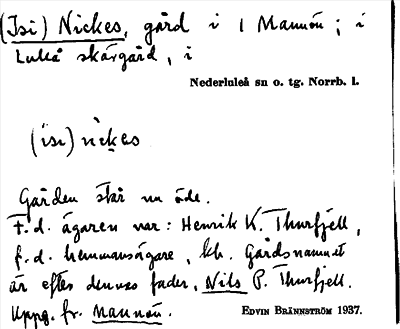 (Isi) Nickes, gård i 1 Mannön; i
Luleå skärgård, i
Nederluleå sn o. tg. Norrb. l.
(ïsi) nickes
Gården står nu öde.
F.d. ägaren var: Henrik K. Thurfjell,
f.d. hemmansägare, kh. Gårdsnamnet
är efter dennes fader, Nils P. Thurfjell.
Uppg. fr. Mannön.
EDVIN BRÄNNSTRÖM 1937.